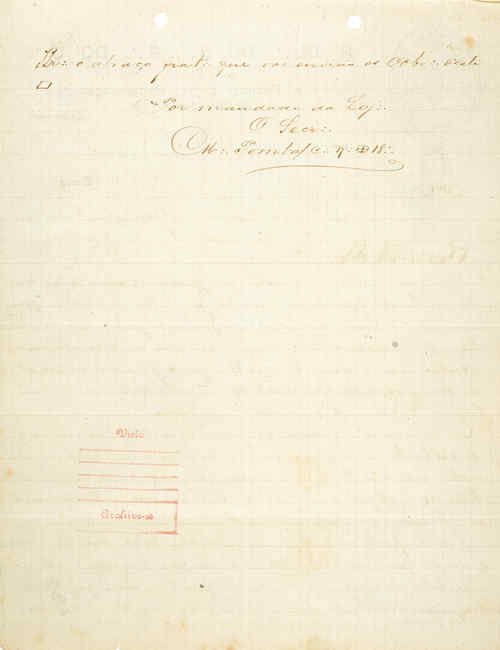 o abraço frat∴ que vos enviam os Obr∴ deste
Por mandado da Loj∴
O Secr∴
M∴ Pombal C∴ 18∴
Visto
Archive-se